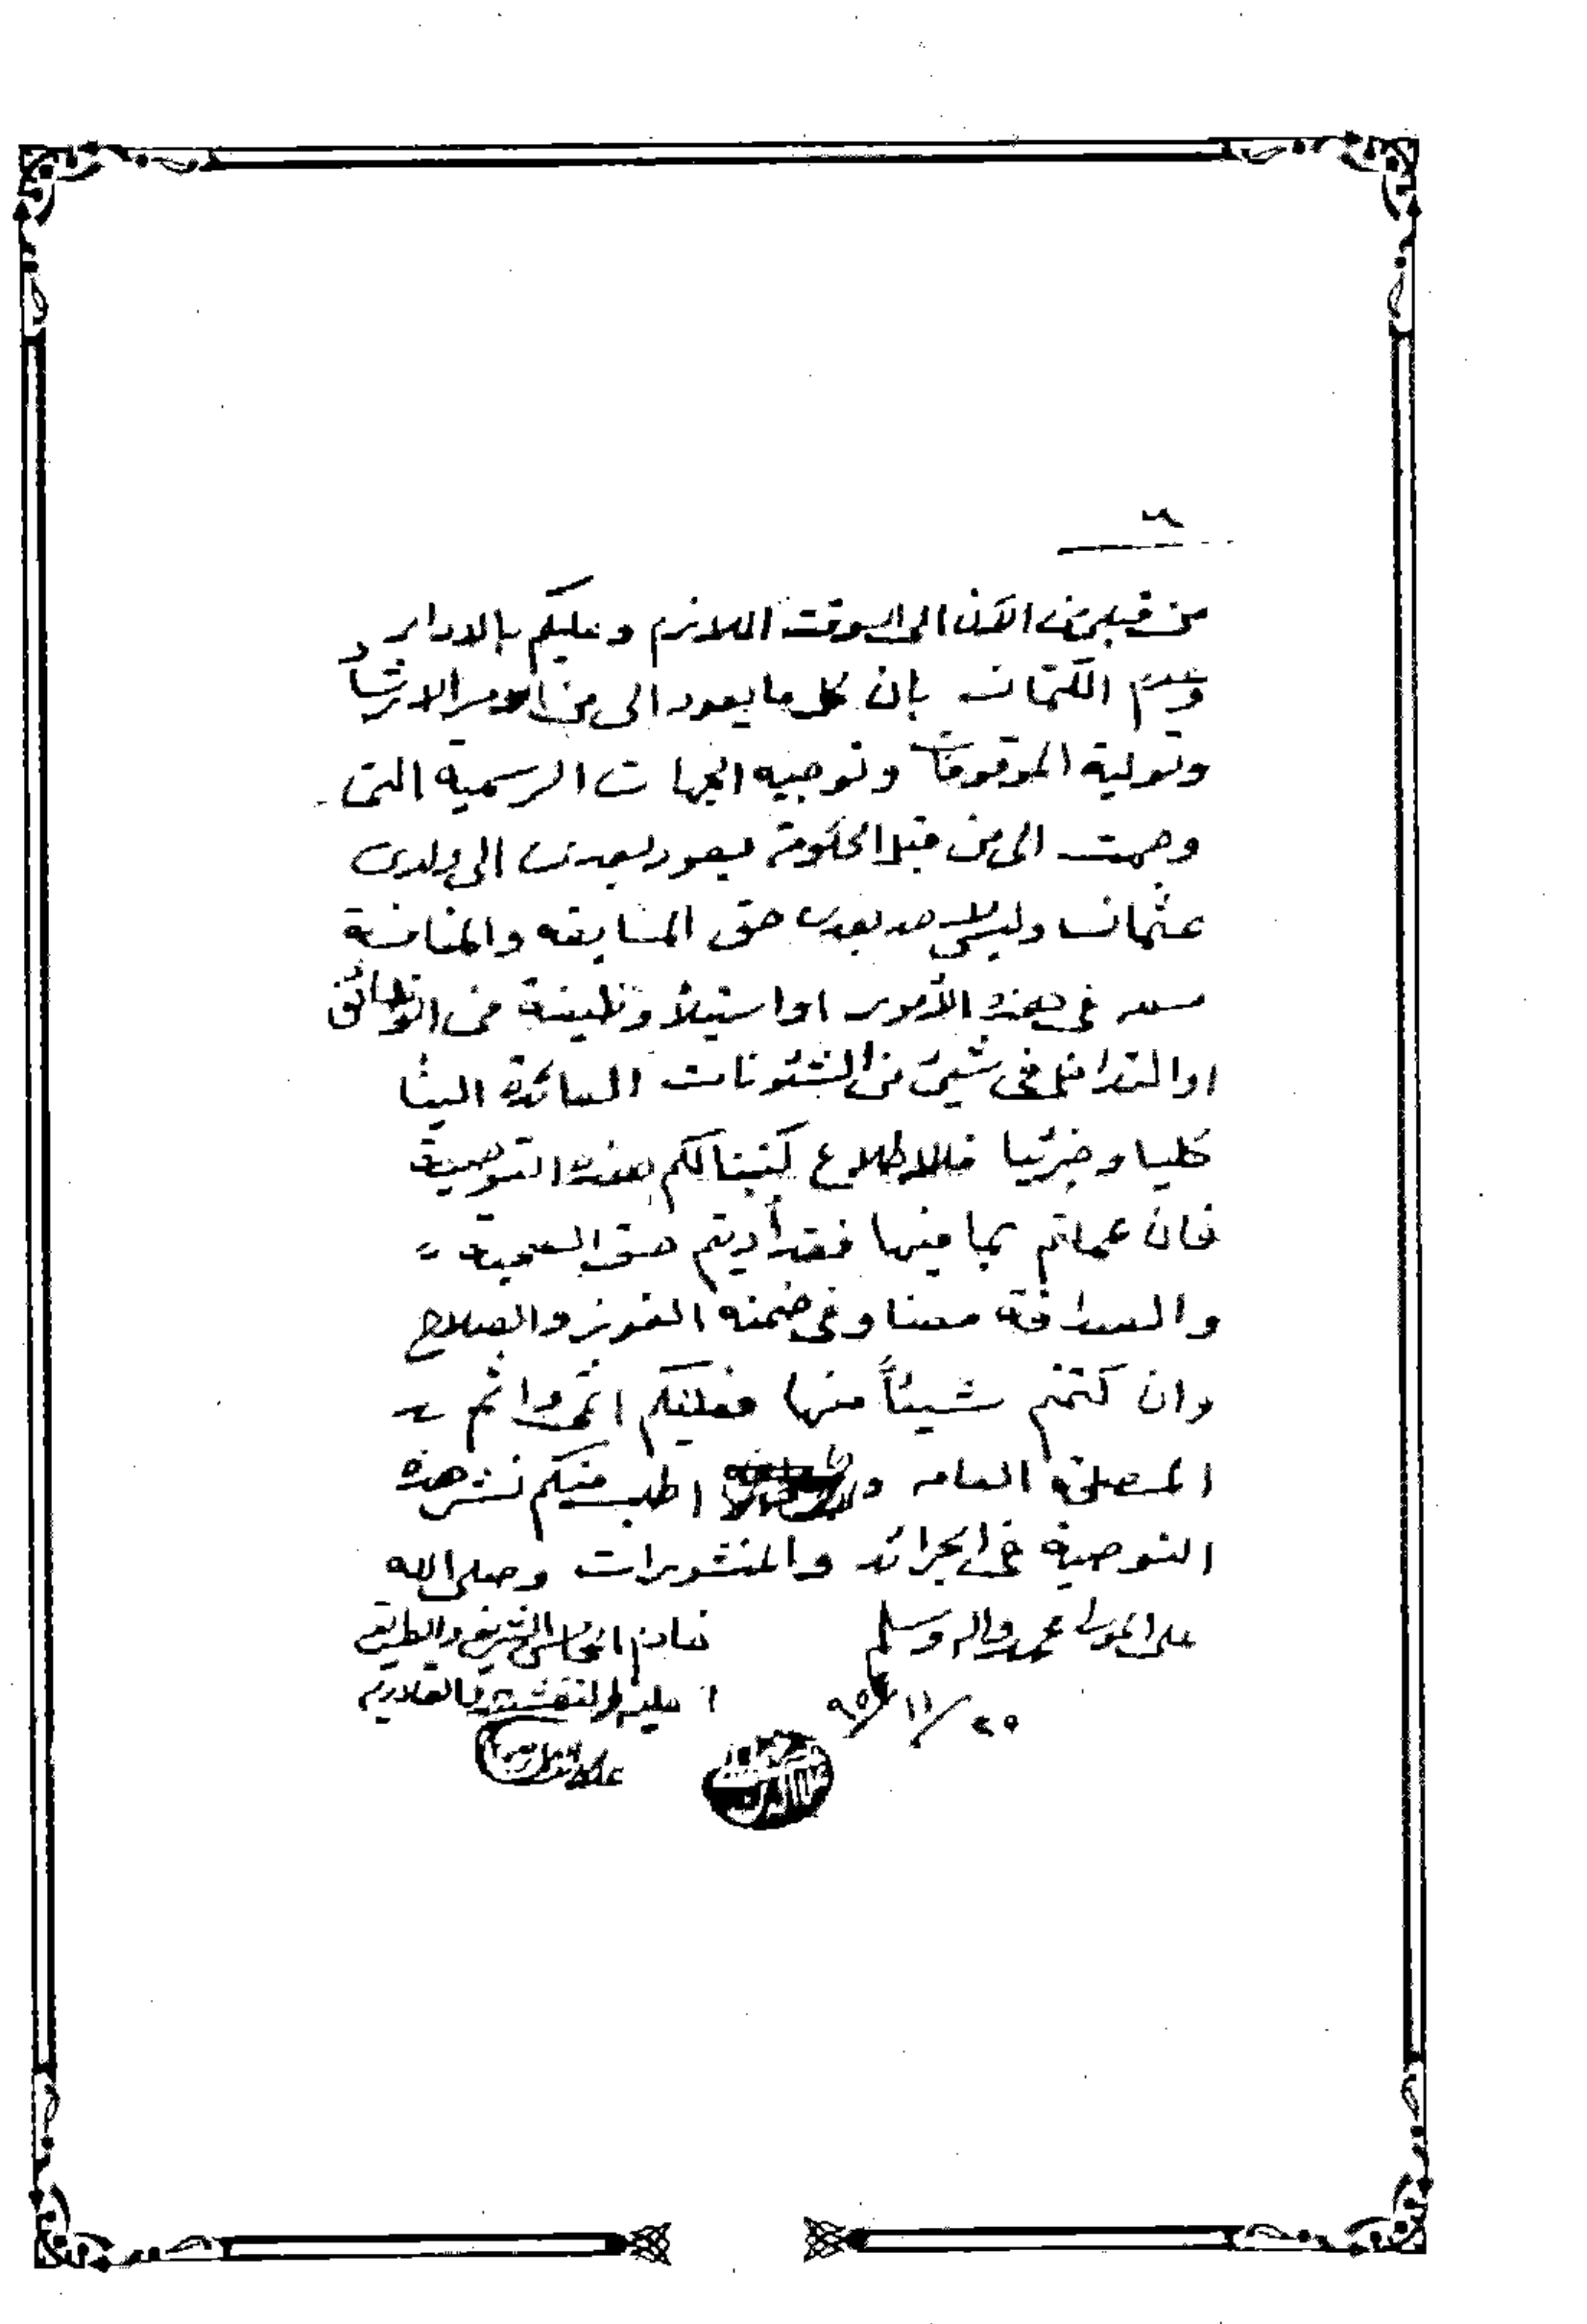 من قبلى من الآن الى الوقت اللازم وعليكم بالدوام
وعدم الكتمان بان كل ما يعود الى من امور الارشاد
وتولية الموقوفات وتوجيه الجهات الرسمية التى
وجهت الى من قبل الحكومة يعود بعدى الى ولدى
عثمان وليس لاحد بعدى حق المسابقه والمنافسة
معه فى هذه الأمور او استيلأ وظيفة من الوظائف
او التداخل فى شيئ من الشئونات العائدة الينا
كليا وجزئيا فللاطلاع كتبنا لكم هذه التوصية
فان عملتم بما فيها فقد أديتم حق الصحبة
والصداقة معنا وفى ضمنه الفوز والصلاح
وان كتمتم شيئاً منها فعليكم اثمى واثم
المصلحة العامه و اطلب منكم نشر هذه
التوصية فى الجرائد والمنشورات وصلى الله
على محمد واله وسلم
خادم الشريف والطريقة
العلية النقشبندية القادرية
٢٩/١١/